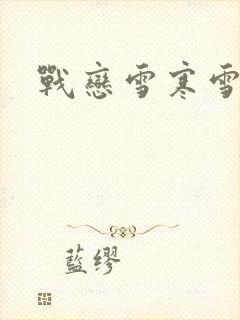 戰戀雪寒雪
藍缪